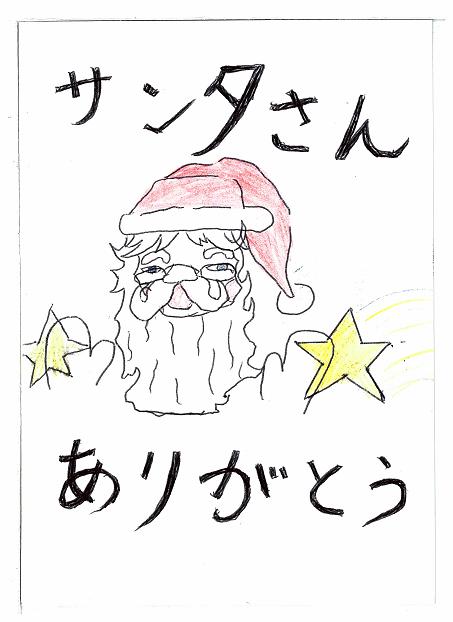 サンタさん
ありがとう